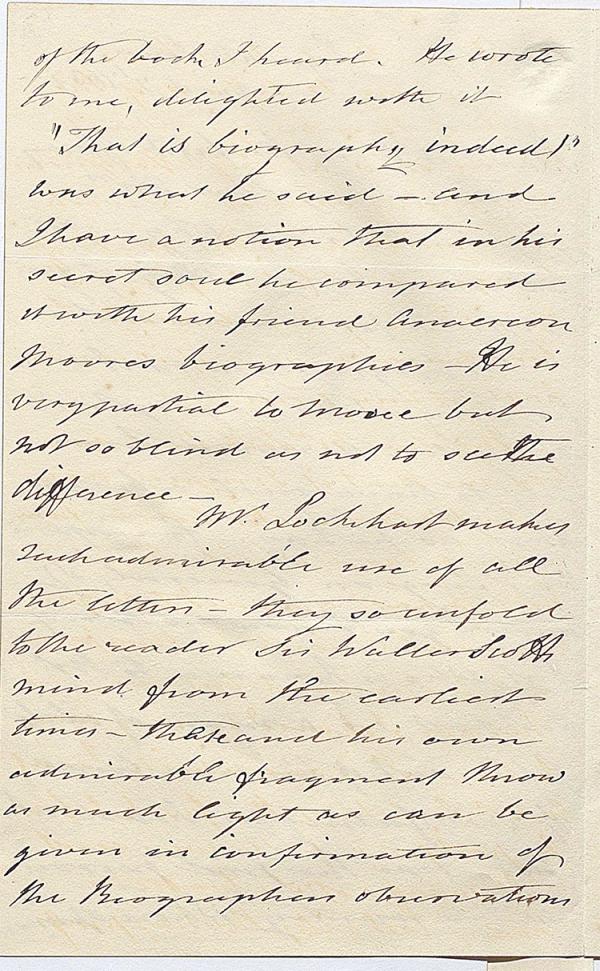 of the book I heard. He wrote
to me, delighted with it
"That is biography indeed!"
was what he said – and
I have a notion that in his
secret soul he compared
it with his friend Anacreon
Moores biographies – He is
very partial to Moore but
not so blind as not to see the
difference –
Mr. Lockhart makes
such admirable use of all
the letters – they so unfold
to the reader Sir Walter Scotts
mind from the earliest
times – these and his own
admirable fragment throw
as much light as can be
given in confirmation of
the Biographers observations